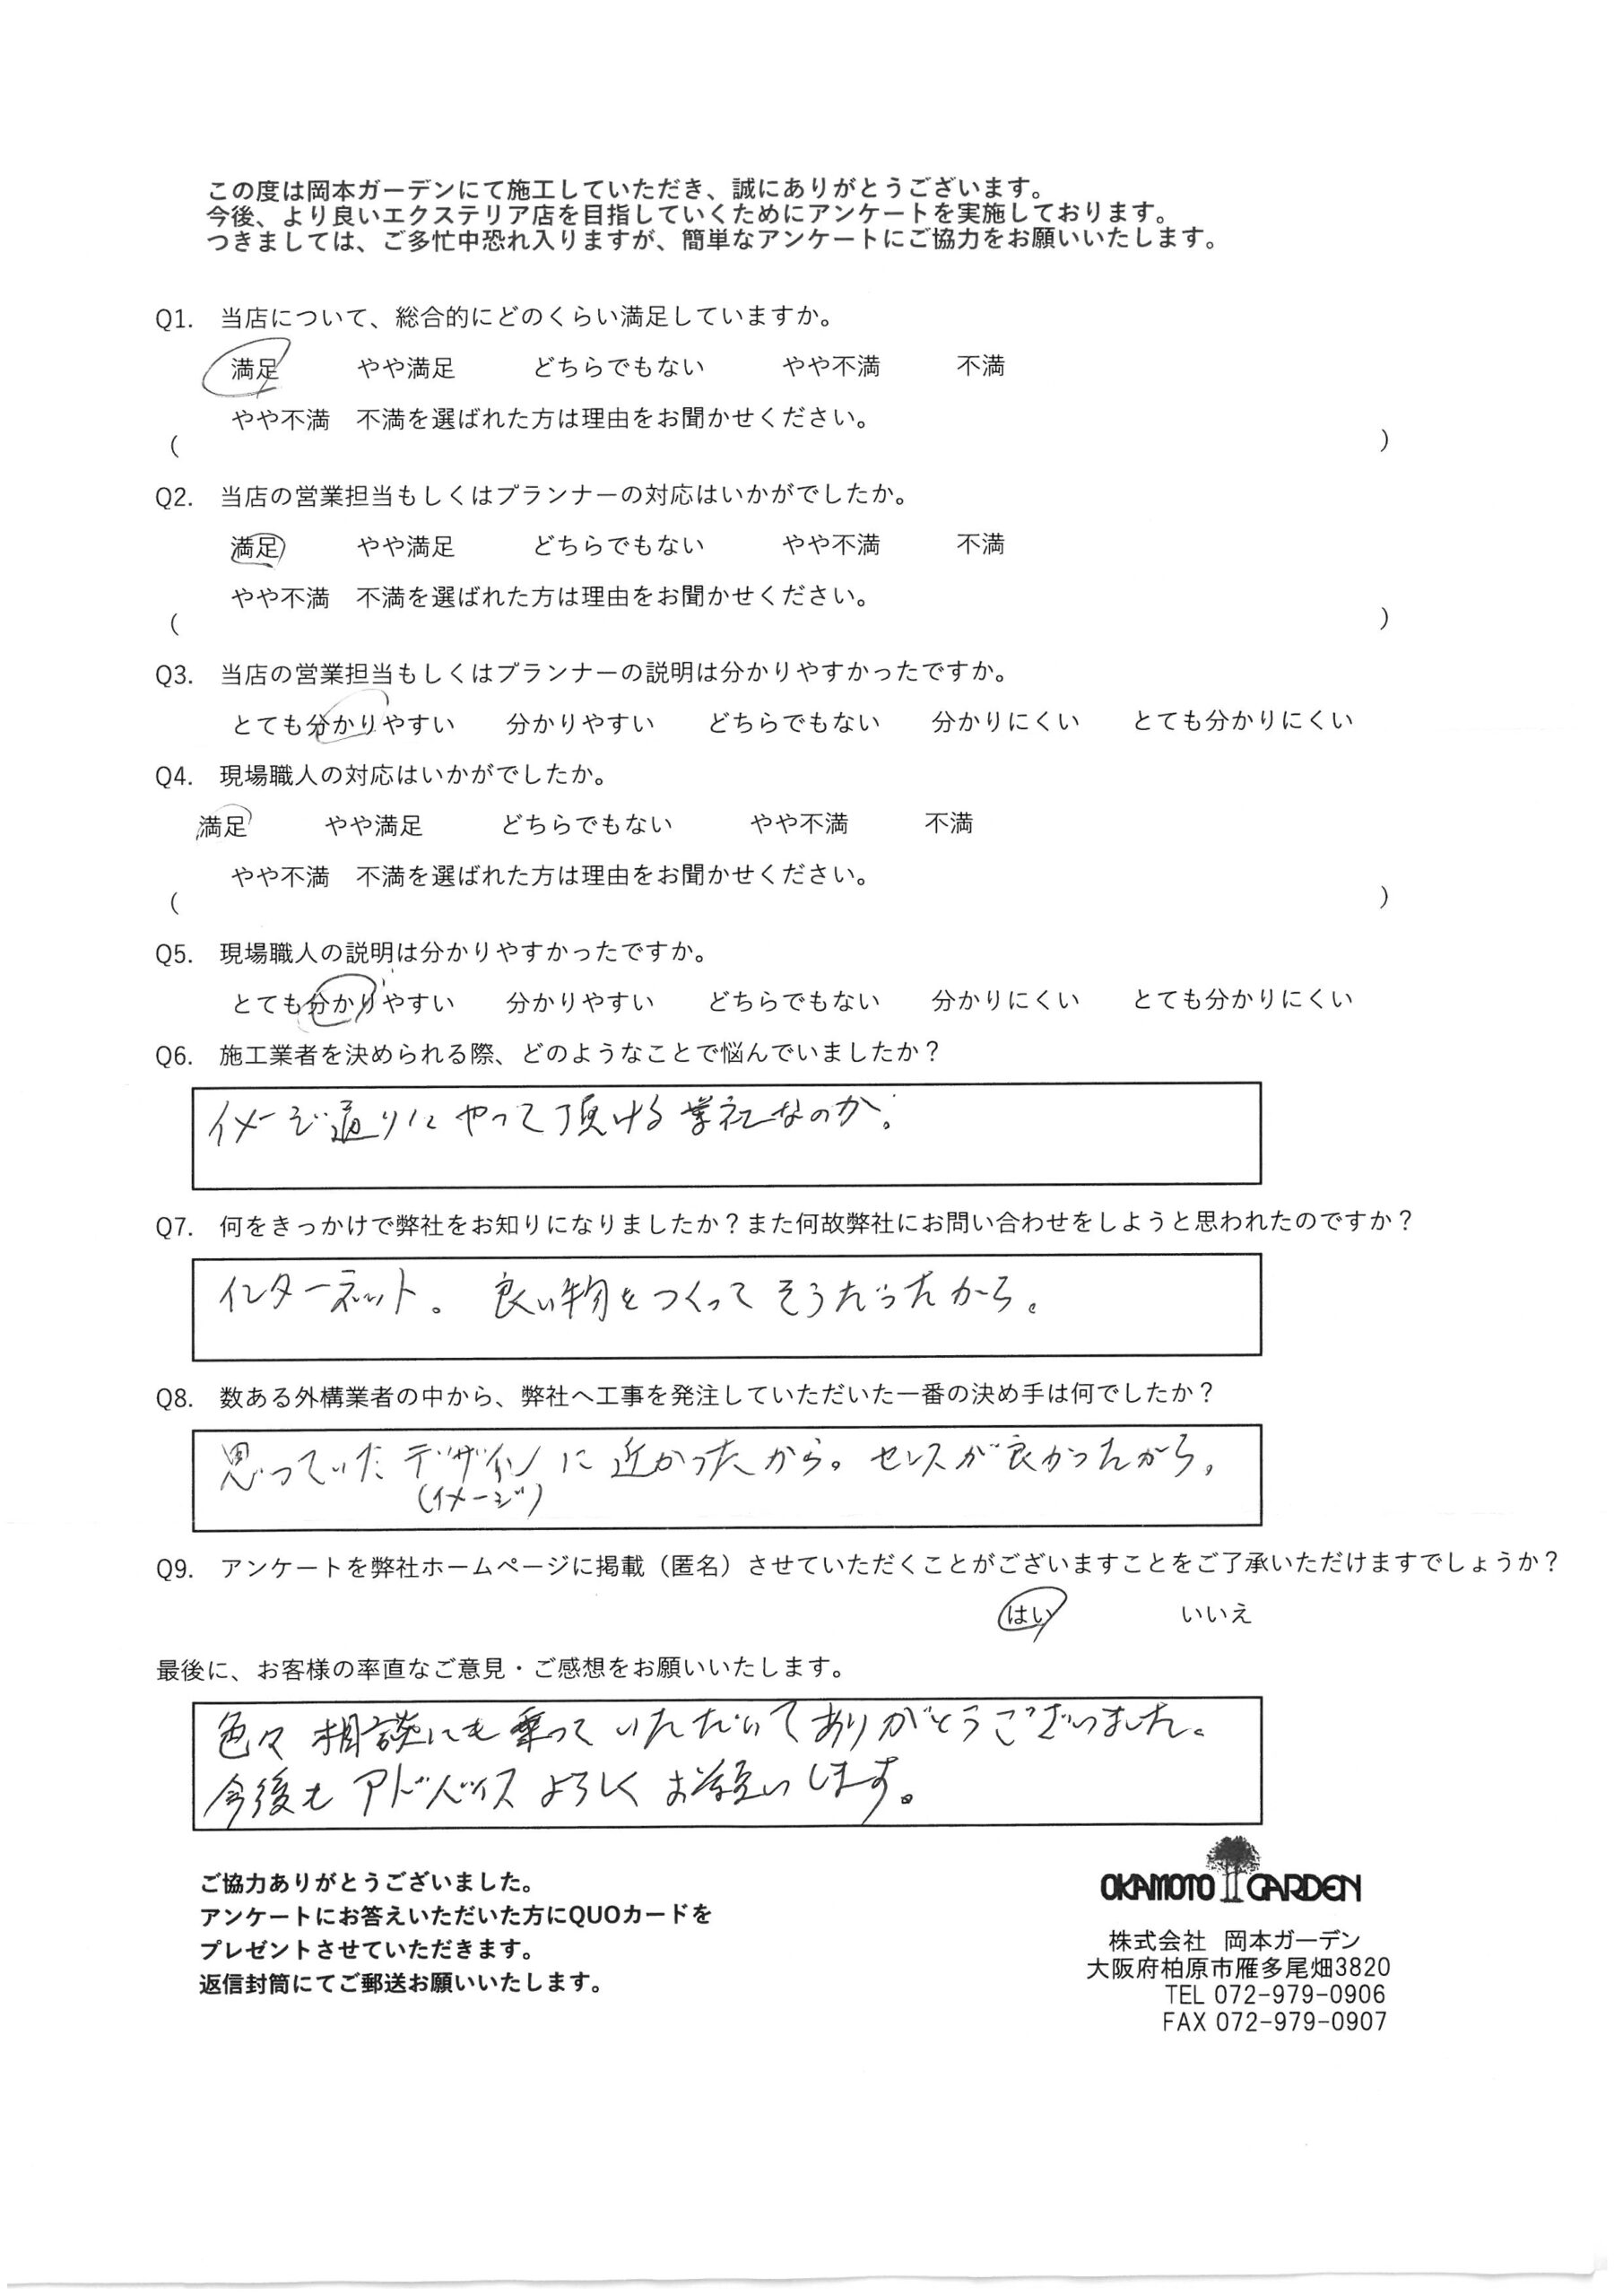 この度は岡本ガーデンにて施工していただき、誠にありがとうございます。
今後、より良いエクステリア店を目指していくためにアンケートを実施しております。
つきましては、ご多忙中恐れ入りますが、簡単なアンケートにご協力をお願いいたします。
Q1. 当店について、総合的にどのくらい満足していますか。
満足 やや満足 どちらでもない やや不満 不満
やや不満 不満を選ばれた方は理由をお聞かせください。
( )
Q2. 当店の営業担当もしくはプランナーの対応はいかがでしたか。
満足 やや満足 どちらでもない やや不満 不満
やや不満 不満を選ばれた方は理由をお聞かせください。
( )
Q3. 当店の営業担当もしくはプランナーの説明は分かりやすかったですか。
とても分かりやすい 分かりやすい どちらでもない 分かりにくい とても分かりにくい
Q4. 現場職人の対応はいかがでしたか。
満足 やや満足 どちらでもない やや不満 不満
やや不満 不満を選ばれた方は理由をお聞かせください。
( )
Q5. 現場職人の説明は分かりやすかったですか。
とても分かりやすい 分かりやすい どちらでもない 分かりにくい とても分かりにくい
Q6. 施工業者を決められる際、どのようなことで悩んでいましたか？
イメージ通りにやって頂ける業社なのか。
Q7. 何をきっかけで弊社をお知りになりましたか？また何故弊社にお問い合わせをしようと思われたのですか？
インターネット。 良い物をつくってそうだったから。
Q8. 数ある外構業者の中から、弊社へ工事を発注していただいた一番の決め手は何でしたか？
思っていたデザインに近かったから。センスが良かったから。
(イメージ)
Q9. アンケートを弊社ホームページに掲載（匿名）させていただくことがございますことをご了承いただけますでしょうか？
はい いいえ
最後に、お客様の率直なご意見・ご感想をお願いいたします。
色々相談にも乗っていただいてありがとうございました。
今後もアドバイスよろしくお願いします。
ご協力ありがとうございました。
アンケートにお答えいただいた方にQUOカードを
プレゼントさせていただきます。
返信封筒にてご郵送お願いいたします。
OKAMOTO GARDEN
株式会社 岡本ガーデン
大阪府柏原市雁多尾畑3820
TEL 072-979-0906
FAX 072-979-0907